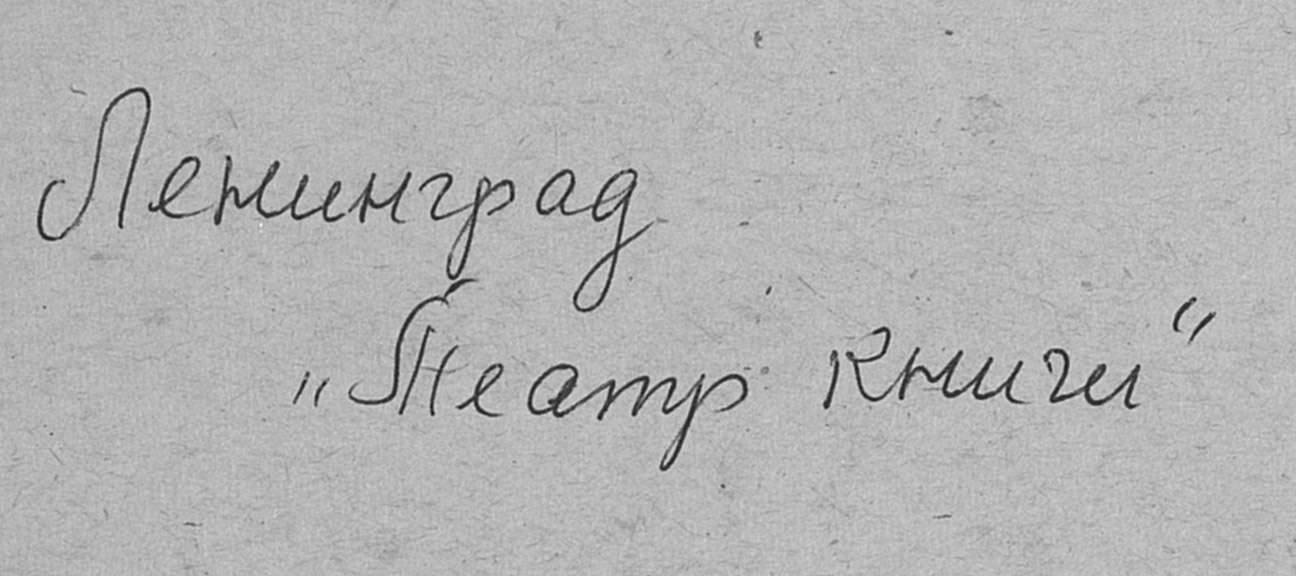 Ленинград
„Театр книги“